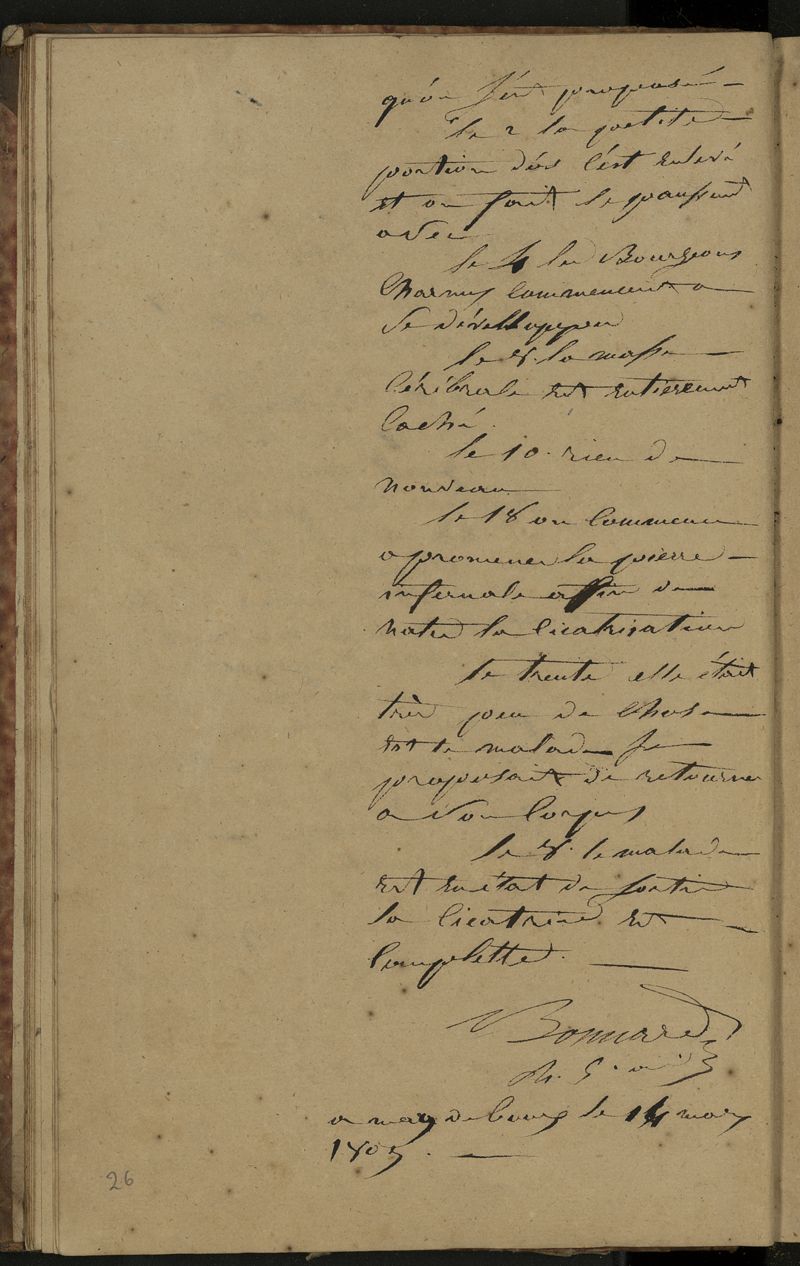 qu'on s'est proposé
le 2 la petite
portion d'os s'est enlevé
et on fait le pansement
avec
le 4 les Bourgeons
charnus commencent a
se dévellopper
le 8. la masse
cérébrale est entierement
caché.
le 10. rien de
nouveau
le 18 on commence
a promener la pierre
infernale affin de
hater la cicatrisation
le trente elle était
très peu de chose
est le malade se
proposait de retourner
a son corps
le 8. le malade
est en état de sortir
la cicatrice est
complette.
Bonnard
a magdebourg le 14 mars
180
26